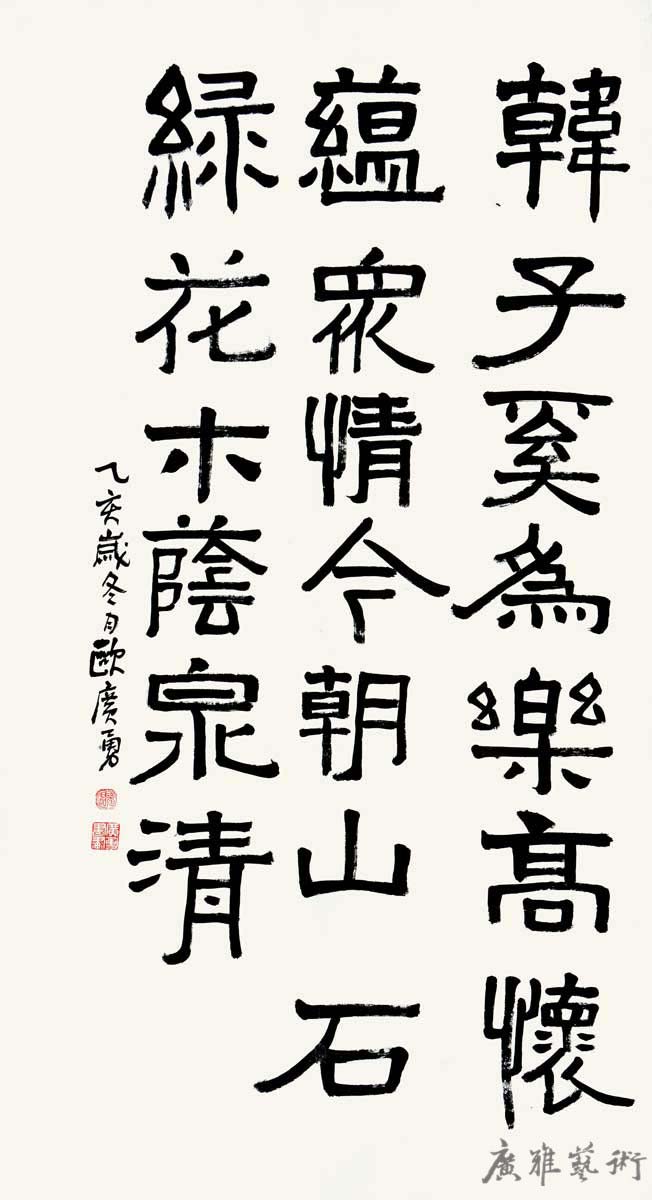 韓子奚為樂高懷
蘊眾情今朝山石
緑花木蔭泉清
乙亥歲冬月歐廣勇
廣雅藝術